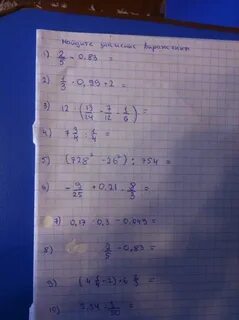 Найдите значение выражения
1) 2/5 - 0,83 =
2) 1/3 · 0,99 + 2 =
3) 12 · (13/24 - 7/12 - 1/6) =
4) 7 3/4 : 1/4 =
5) (728² - 26²) : 754 =
6) - 9/25 + 0,21 · 8/3 =
7) 0,17 · 0,3 - 0,049 =
8) 2/5 - 0,83 =
9)
10)